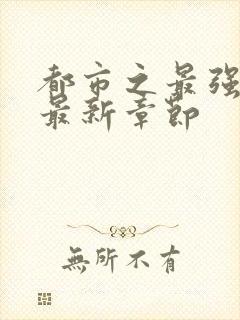 都市之最强
最新章節
無所不有